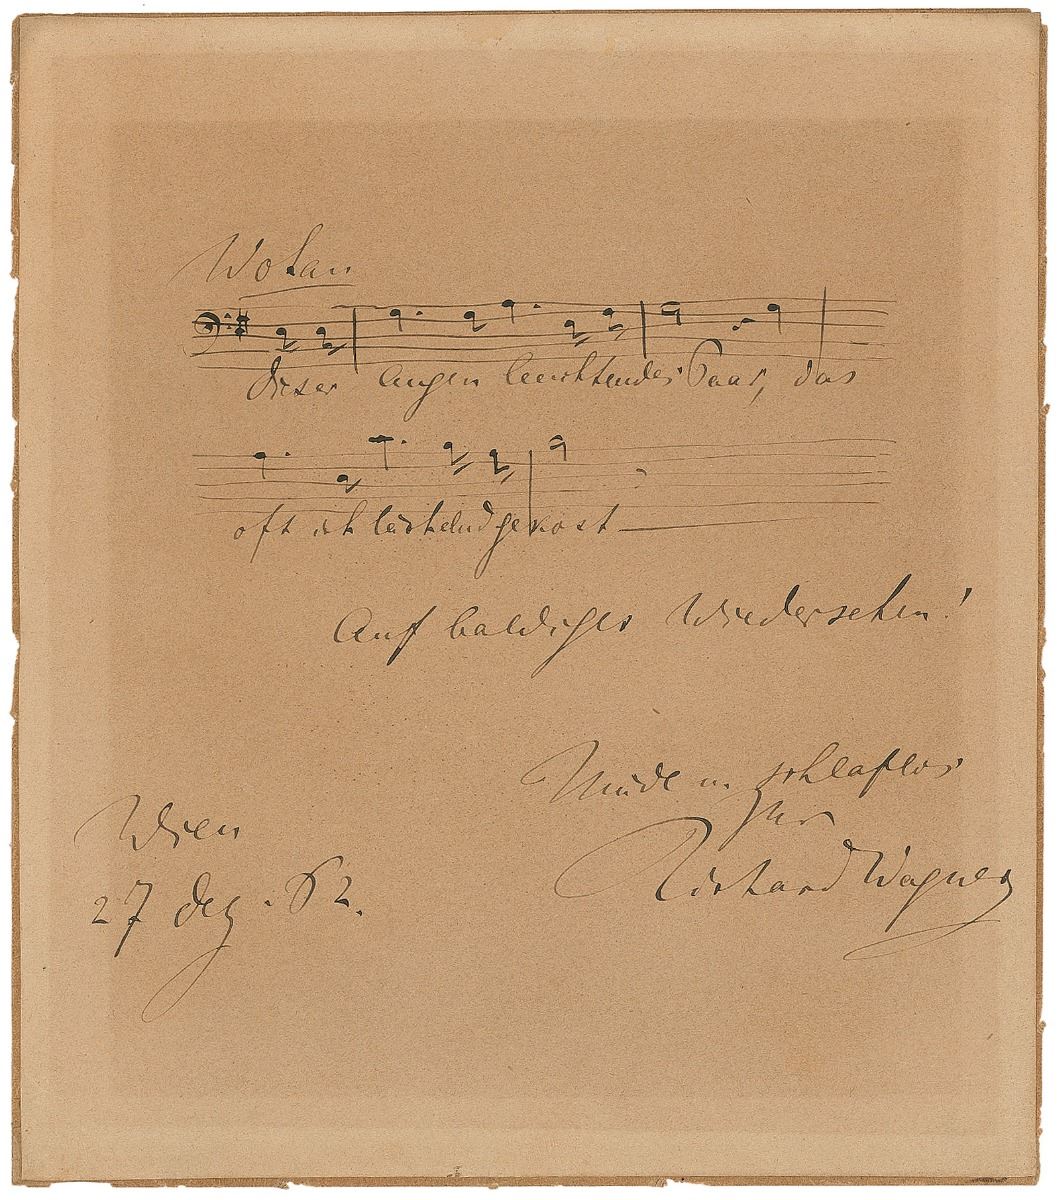 Wotan
Dieser Augen leuchtendes Paar, das
oft ich lächelnd gekost
Auf baldiges Wiedersehen!
Müde u. schlaflos
Ihr
Richard Wagner
Wien
27 Dez. 62.